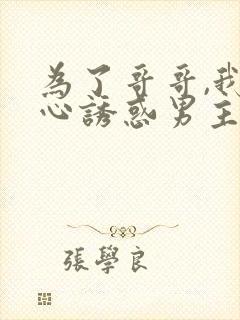 為了哥哥,我
心誘惑男主
張學良